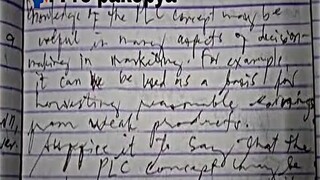 knowledge of the PLC concept may be
useful in many aspects of decision-
making in marketing. For example,
it can be used as a basis for
harvesting reasonable earnings
from weak products.
Suffice it to say that the
PLC concept may be